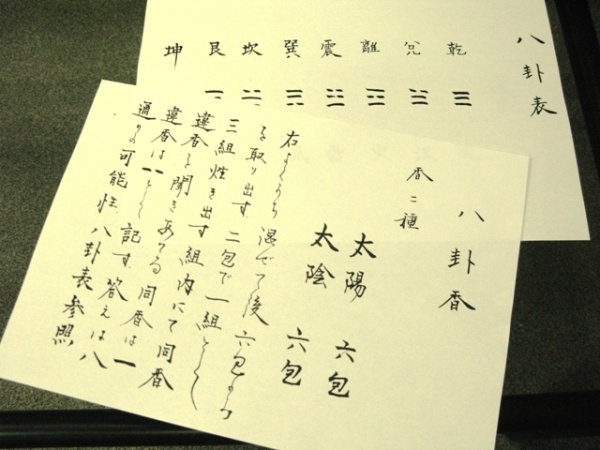 八卦表
乾 兌 離 震 巽 坎 艮 坤
八卦香
香二種
太陽 六包
太陰 六包
右よくうち混ぜて後 六包づつ
を取り出す 二包で一組として
三組炷き出す 組内にて同香
違香を聞きあてる 同香は一
違香は--として記す 答えは八
通りの可能性 八卦表参照